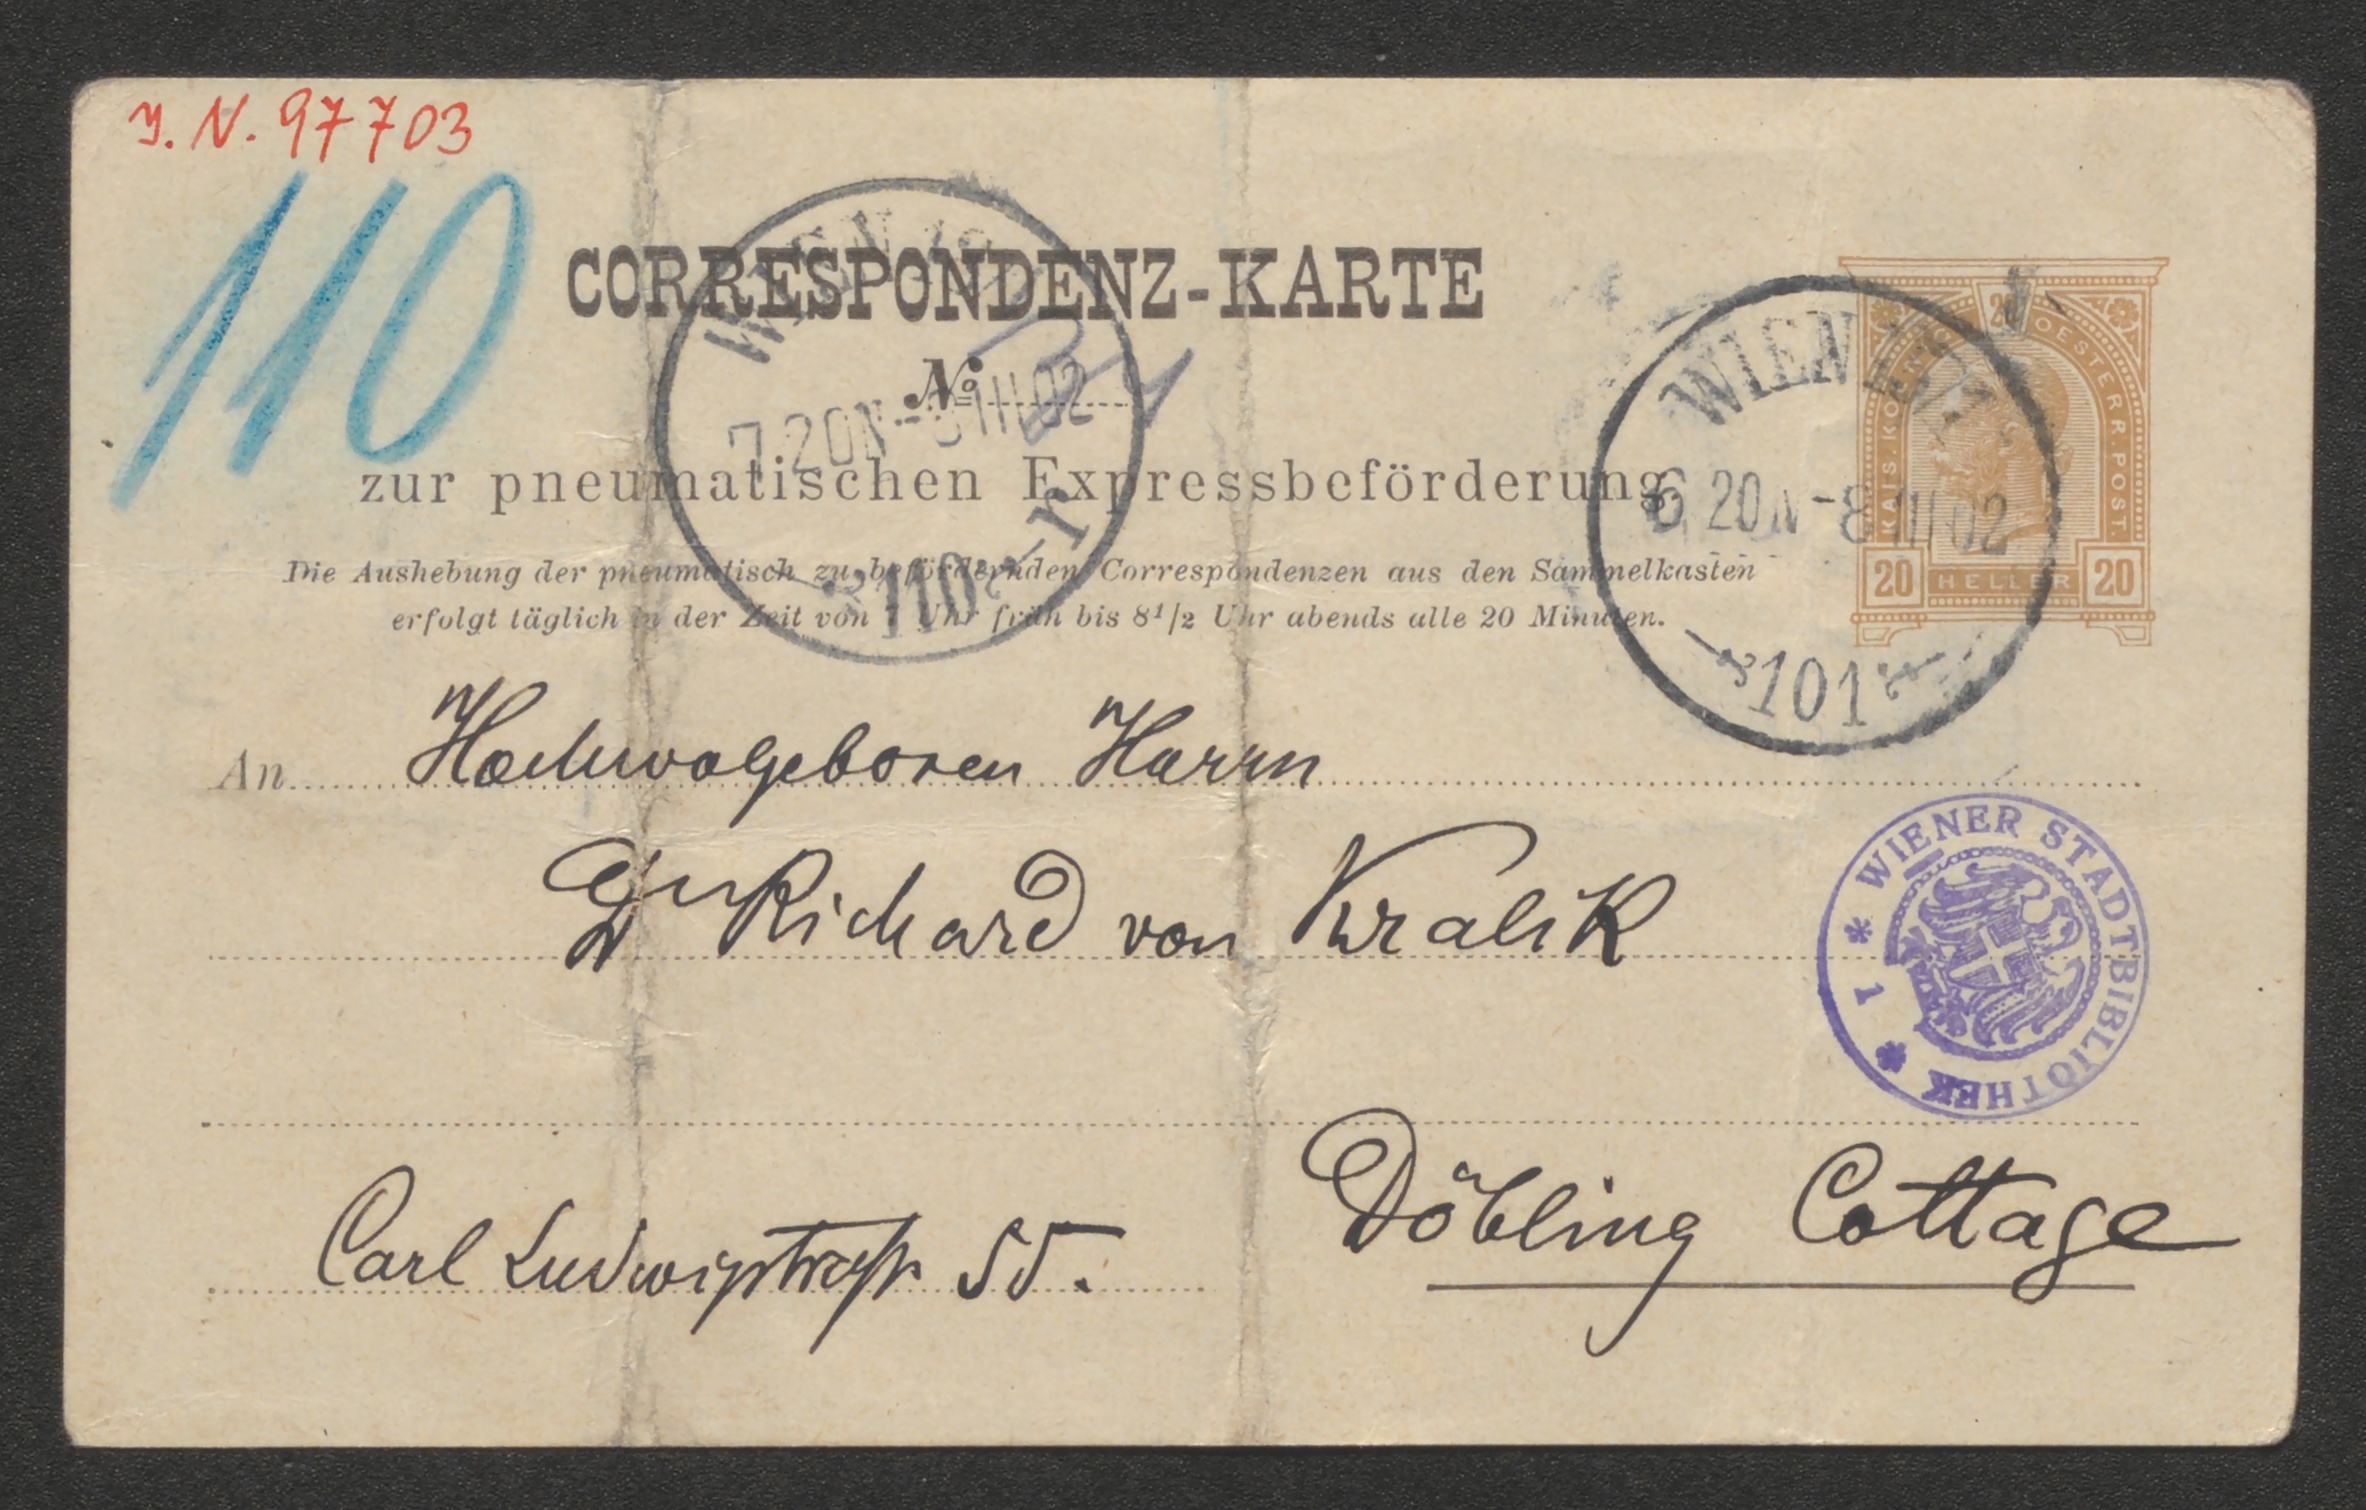 J. N. 97703
110
CORRESPONDENZ-KARTE
No
zur pneumatischen Expressbeförderung
Die Aushebung der pneumatisch zu befördernden Correspondenzen aus den Sammelkasten
erfolgt täglich in der Zeit von 7 Uhr früh bis 8 1/2 Uhr abends alle 20 Minuten.
WIEN
7 20N-8 III 02
110
WIEN
6 20N-8 III 02
101
20
KAIS. KOENIG. OESTERR. POST.
20 HELLER 20
An Hochwolgeboren Herrn
Dr Richard von Kralik
WIENER STADTBIBLIOTHEK * 1 *
Döbling Cottage
Carl Ludwigstrasse 55.